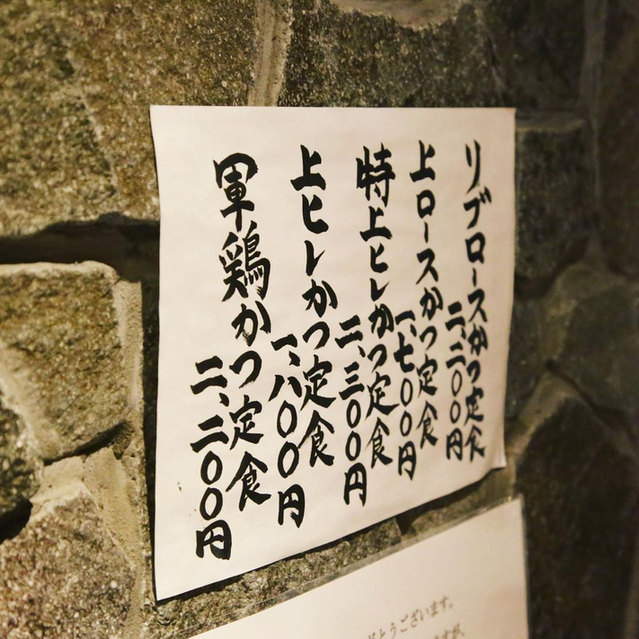 リブロースかつ定食
二、二〇〇円
上ロースかつ定食
一、七〇〇円
特上ヒレかつ定食
二、三〇〇円
上ヒレかつ定食
一、八〇〇円
軍鶏かつ定食
二、二〇〇円
とうございます。
ますが、